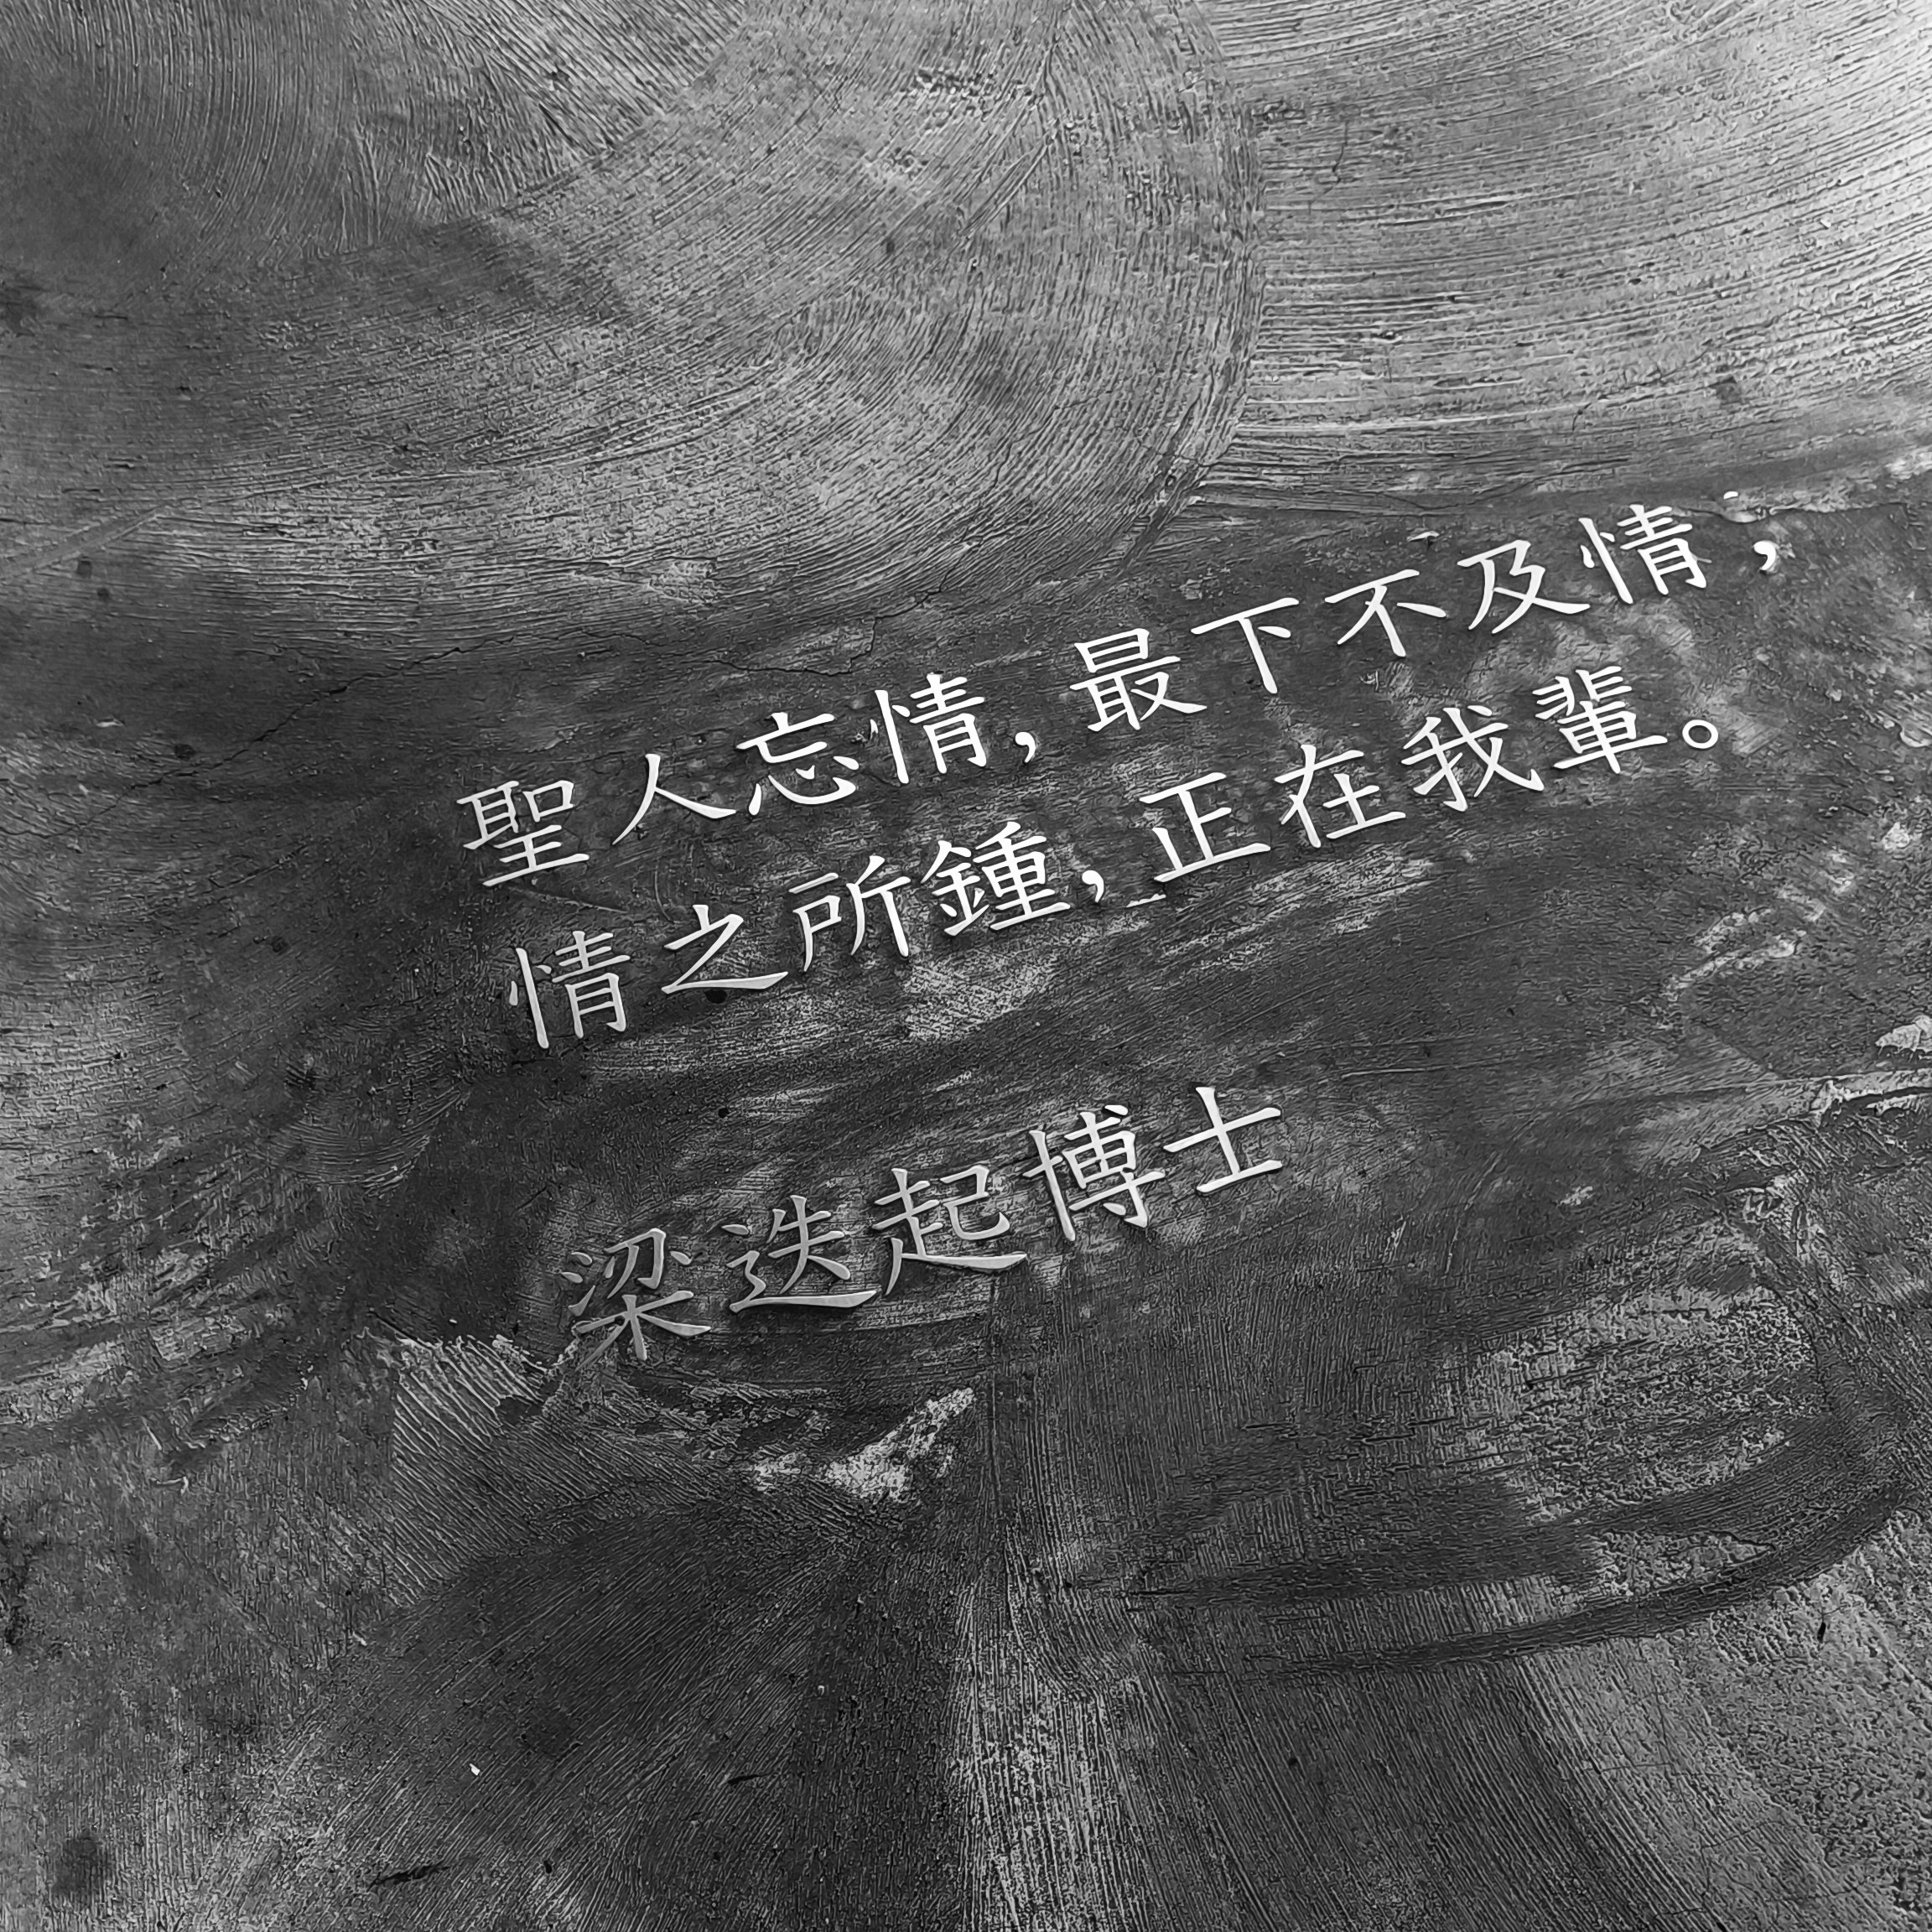 聖人忘情,最下不及情,
情之所鍾,正在我輩。
梁迭起博士